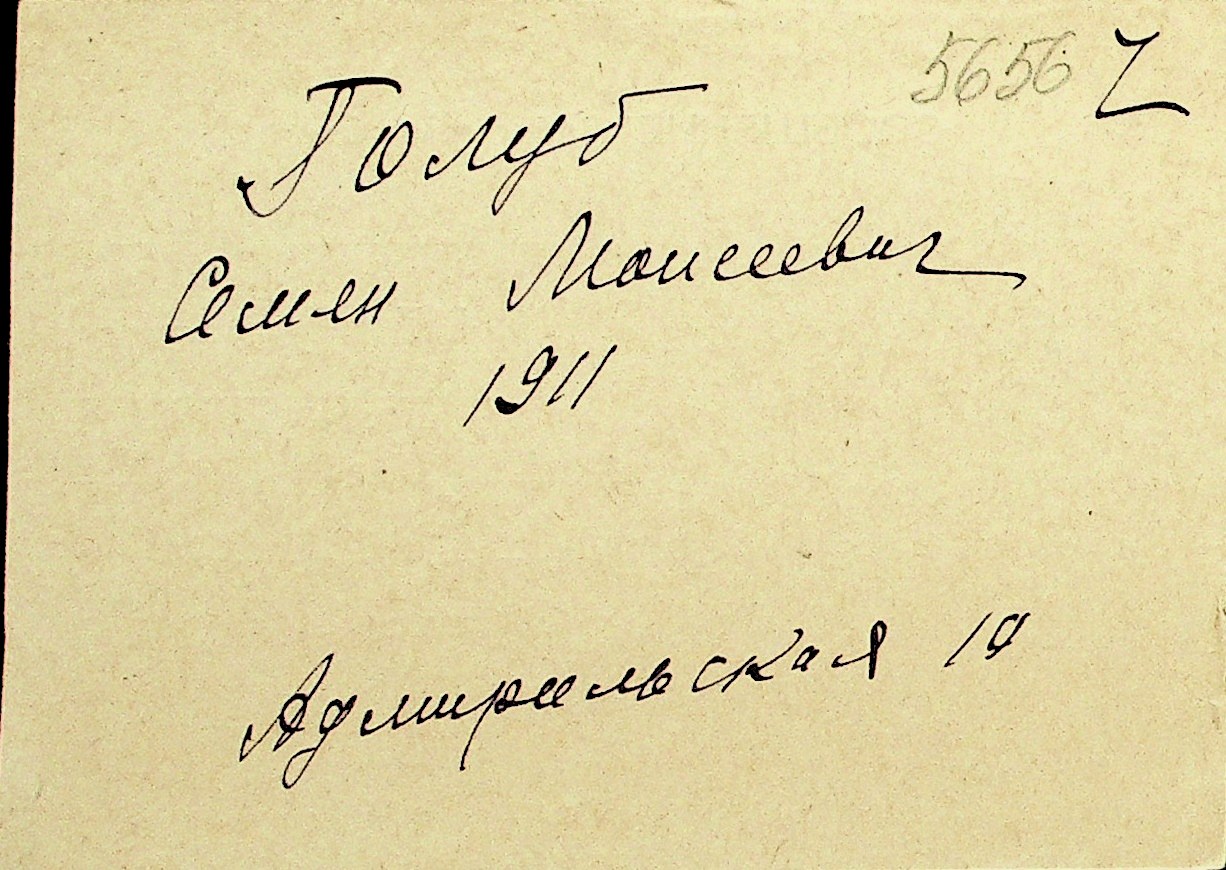 5656
Голуб
Семен Моисеевич
1911
Адмиральская